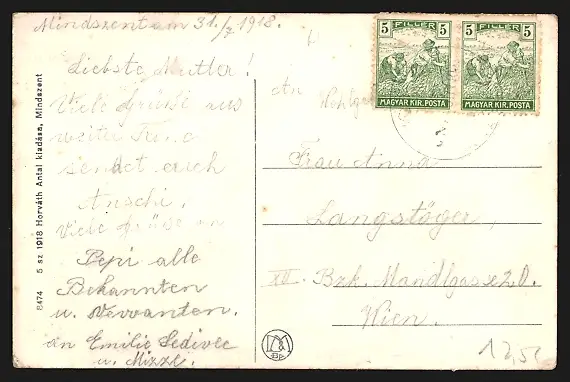 Mindszent am 31./7 1918.
Liebste Mutter!
Viele Grüße aus
weiter Ferne
sendet euch
Anschi.
Viele Grüße an
Pepi alle
Bekannten
u. Verwanten.
an Emilie Sedivec
u. Mizze.
8474 5 sz 1918 Horváth Antal kiadása, Mindszent
5 FILLER 5
MAGYAR KIR. POSTA
5 FILLER 5
MAGYAR KIR. POSTA
An
Frau Anna
Langstöger,
XII. Bzk. Mandlgasse 20.
Wien.
Bp